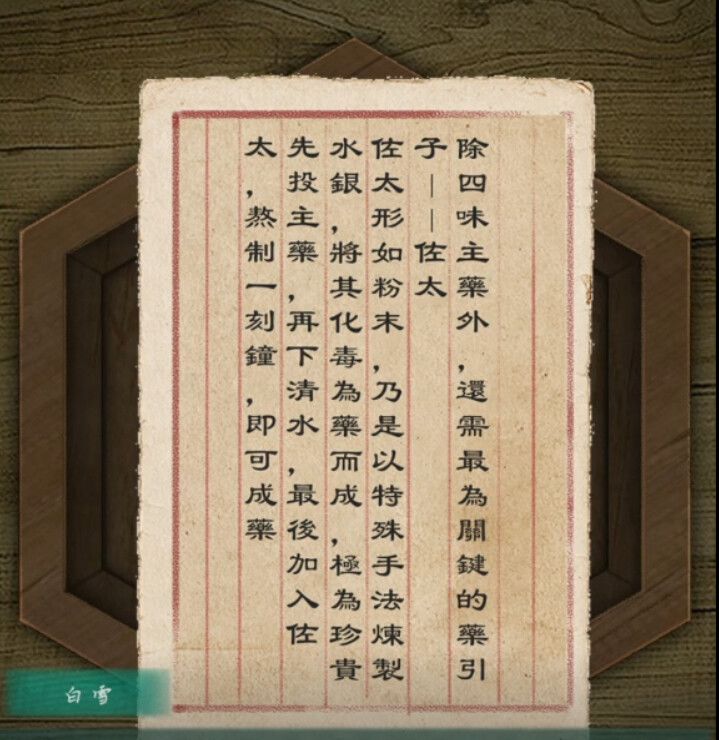 除四味主藥外，還需最為關鍵的藥引
子——佐太
佐太形如粉末，乃是以特殊手法煉製
水銀，將其化毒為藥而成，極為珍貴
先投主藥，再下清水，最後加入佐
太，熬制一刻鐘，即可成藥
白雪